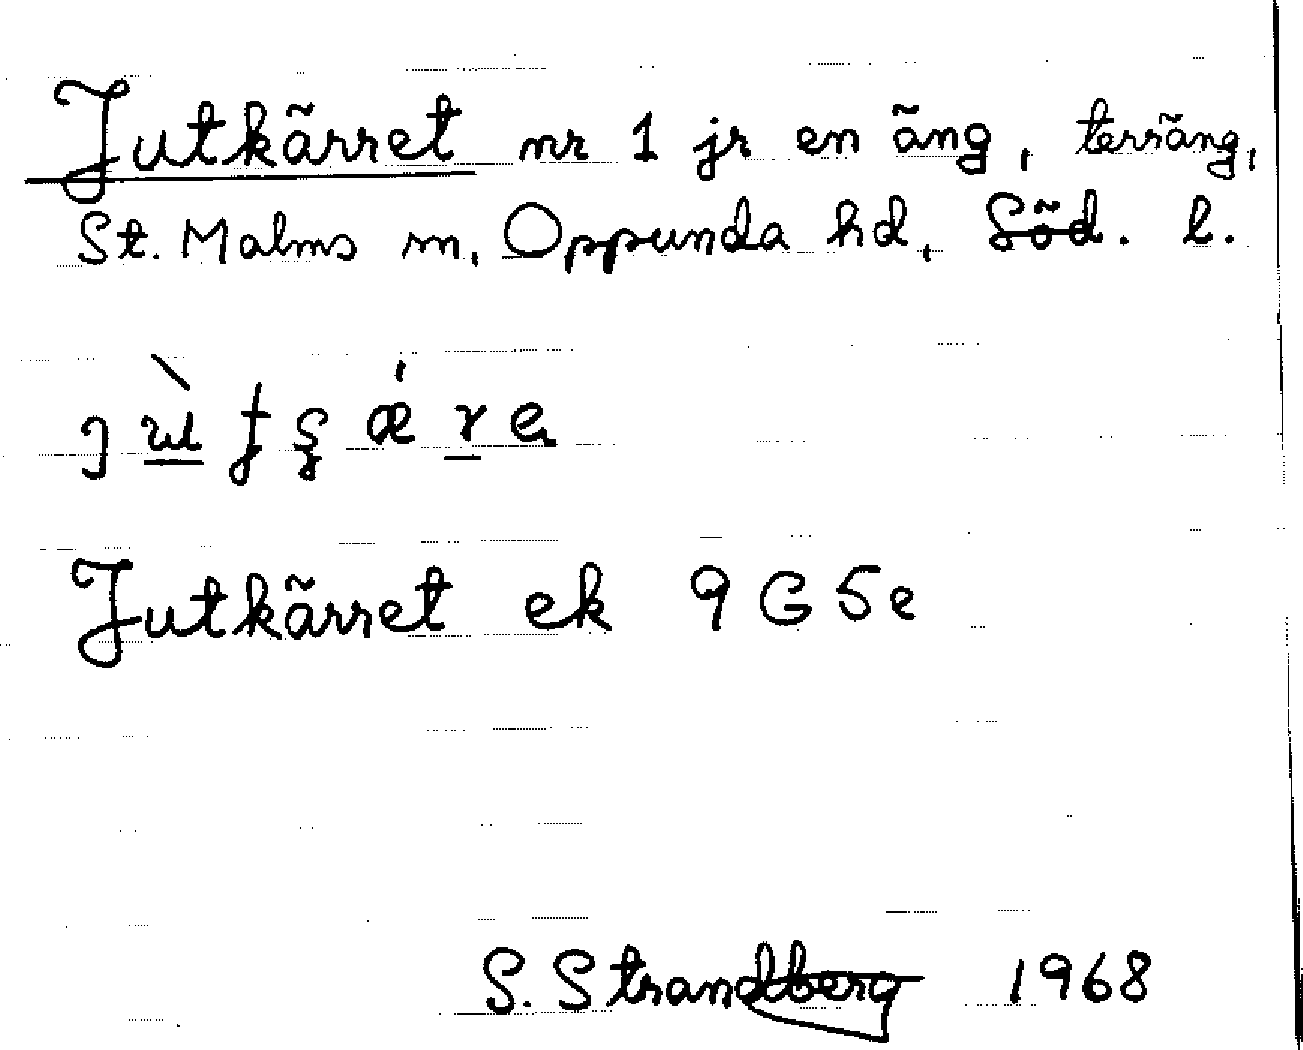 Jutkärret nr 1 jr en äng, terräng,
St. Malms sn, Oppunda hd, Söd. l.
Jutkärret ek 9G5e
S. Strandberg 1968